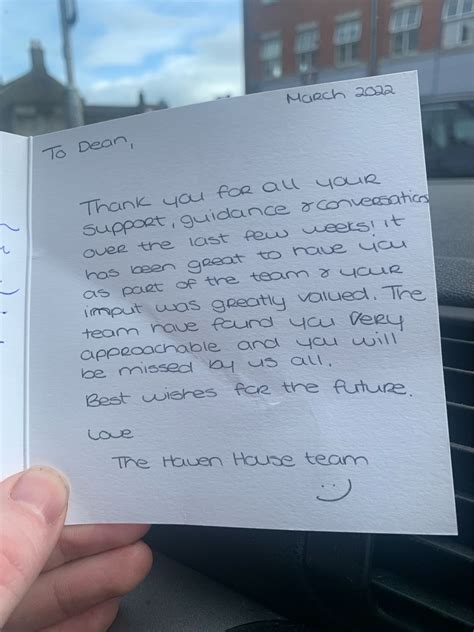 March 2022
To Dean,
Thank you for all your
support, guidance & conversations
over the last few weeks! it
has been great to have you
as part of the team & your
imput was greatly valued. The
team have found you very
approachable and you will
be missed by us all.
Best wishes for the future.
Love
The Haven House team